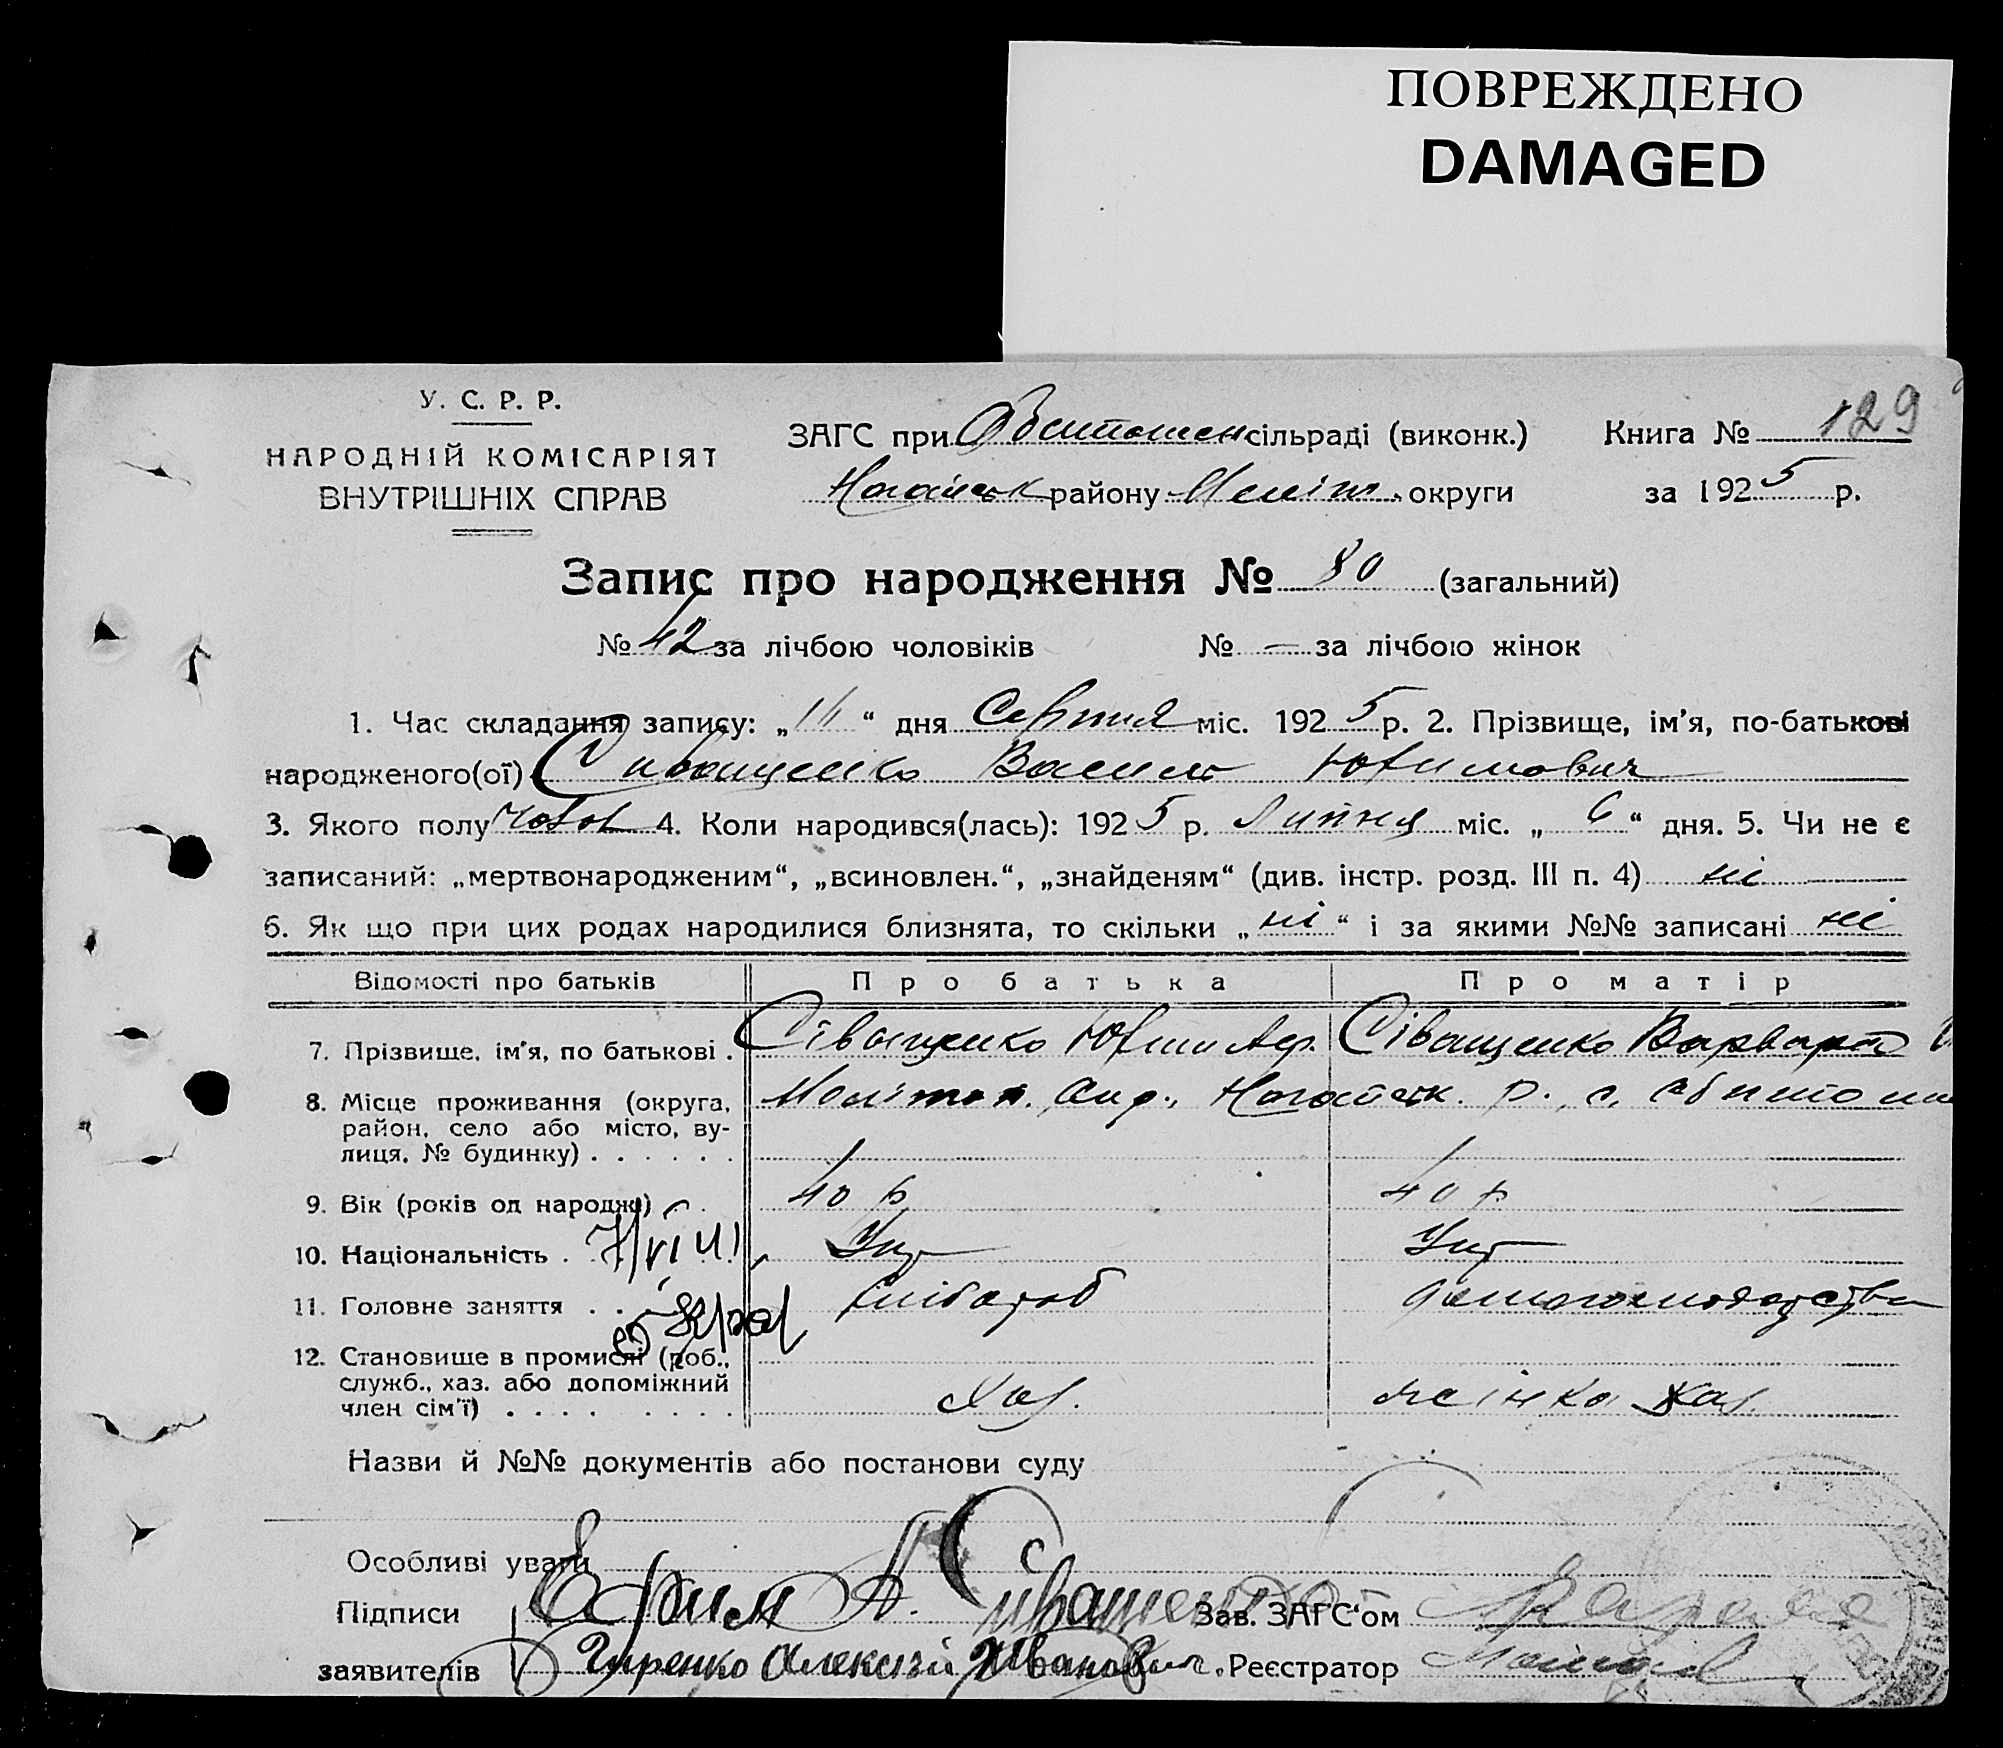 ПОВРЕЖДЕНО
DAMAGED
У. С. Р. Р.
НАРОДНІЙ КОМІСАРІЯТ
ВНУТРІШНІХ СПРАВ
ЗАГС при сільраді (виконк.)
Ногайськ району Меліт. округи
Книга № 129
за 1925 р.
Запис про народження № 80 (загальний)
№ 42 за лічбою чоловіків № — за лічбою жінок
1. Час складання запису: „ “ дня Серпня міс. 1925 р. 2. Прізвище, ім'я, по-батькові
народженого(ої) Сиващенко Василь Юхимович
3. Якого полу 4. Коли народився(лась): 1925 р. Липня міс. „ 6 “ дня. 5. Чи не є
записаний: „мертвонародженим“, „всиновлен.“, „знайденям“ (див. інстр. розд. III п. 4) ні
6. Як що при цих родах народилися близнята, то скільки „ ні “ і за якими №№ записані ні
Відомості про батьків Про батька Про матір
7. Прізвище, ім'я, по батькові . Сіващенко Юхим Сіващенко Варвара
8. Місце проживання (округа, Мелітоп. окр., Ногайськ. р., с.
район, село або місто, ву-
лиця, № будинку) . . . . . .
9. Вік (років од народж.) . . 40 р 40 р
10. Національність . Укр Укр
11. Головне заняття . . . хлібороб
12. Становище в промислі (роб.,
служб., хаз. або допоміжний
член сім'ї) . . . . . . . . . Хаз. жінка хаз.
Назви й №№ документів або постанови суду
Особливі уваги
Підписи Ефим А. Сиващенко Зав. ЗАГС'ом
заявителів Гиренко Алексей Иванович. Реєстратор